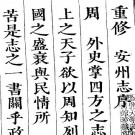 重修　安州志序
周　外史掌四方之志
上之天子欲以周知列
國之盛衰與民情所
苦是志之一書關乎政